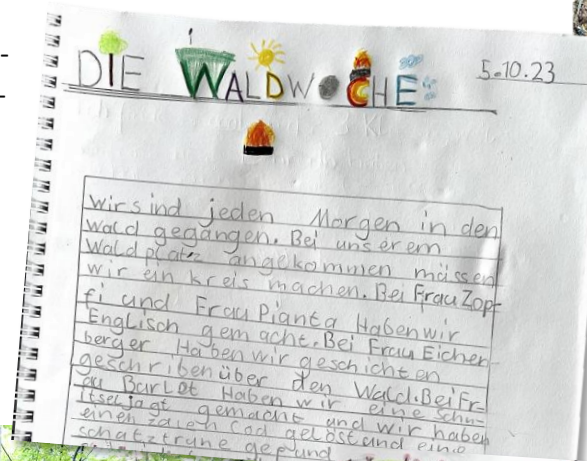 DIE WALDWOCHE
5.10.23
wir sind jeden Morgen in den
wald gegangen. Bei unserem
Waldplatz angekommen müssen
wir ein kreis machen. Bei Frau Zopf-
fi und Frau Pianta Haben wir
Englisch gemacht. Bei Frau Eichen-
berger Haben wir geschichten
geschriben über den Wald. Bei Fr-
au Burlet Haben wir eine Schn-
itseljagt gemacht und wir haben
einen Cod gelöst und eine
schatztruhe gefund